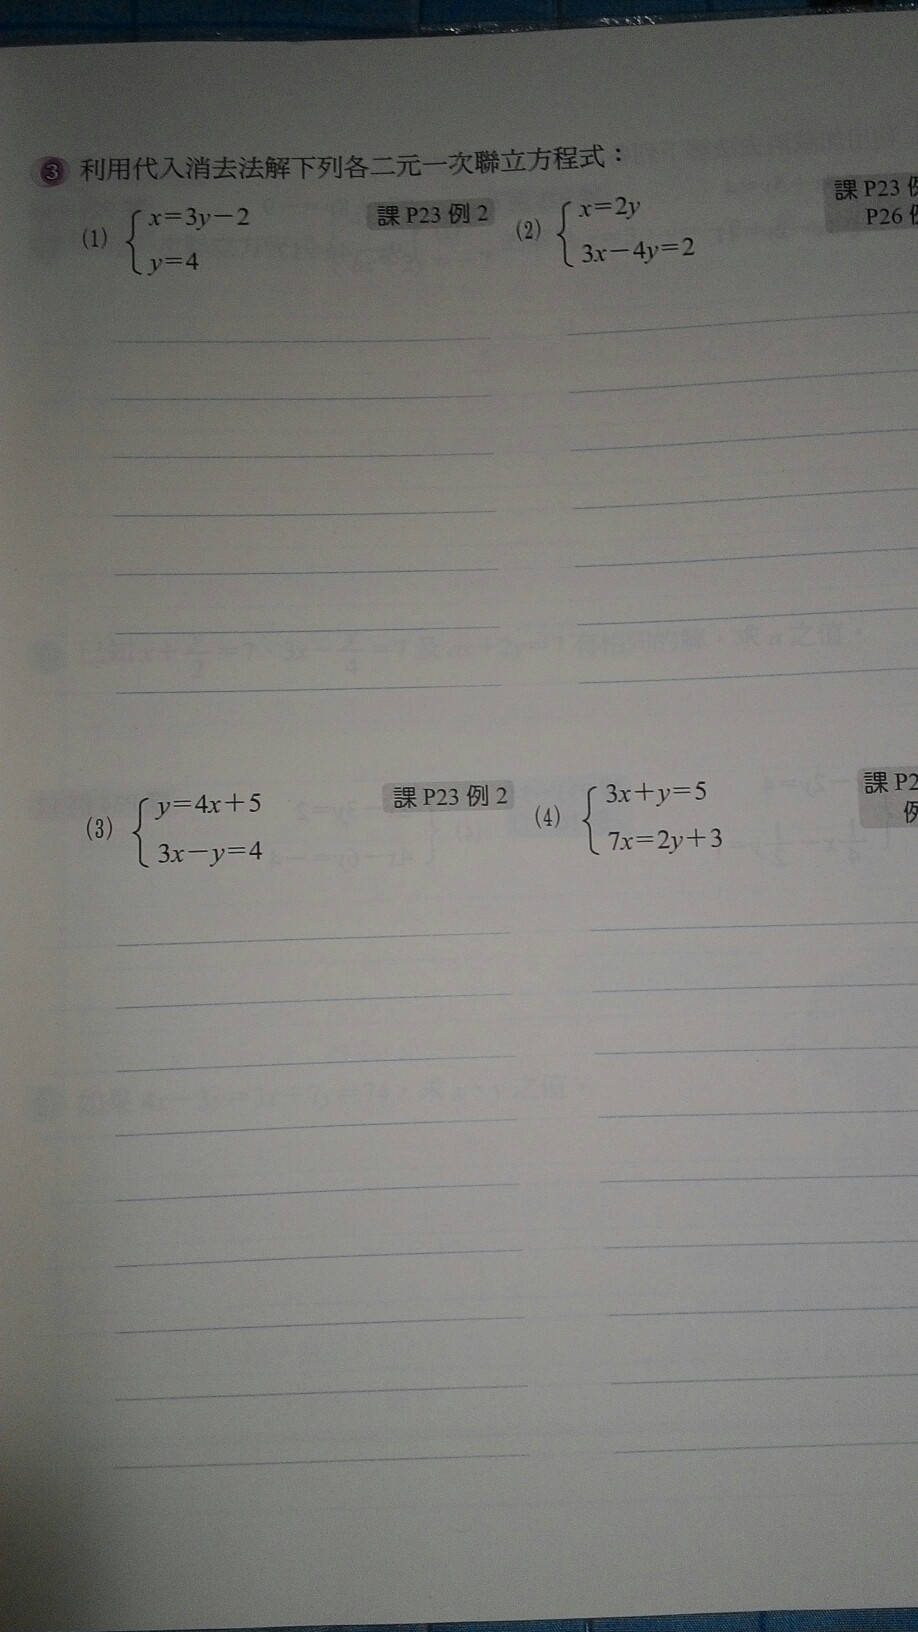 3 利用代入消去法解下列各二元一次聯立方程式：
(1) { x=3y-2
y=4
課 P23 例 2
(2) { x=2y
3x-4y=2
課 P23
P26
(3) { y=4x+5
3x-y=4
課 P23 例 2
(4) { 3x+y=5
7x=2y+3
課 P2
例